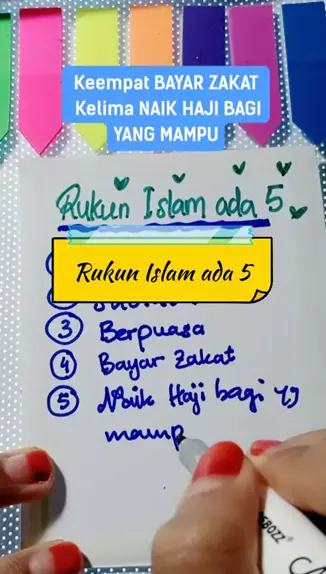 Keempat BAYAR ZAKAT
Kelima NAIK HAJI BAGI
YANG MAMPU
Rukun Islam ada 5
Rukun Islam ada 5
3 Berpuasa
4 Bayar Zakat
5 Naik Haji bagi yg
mamp